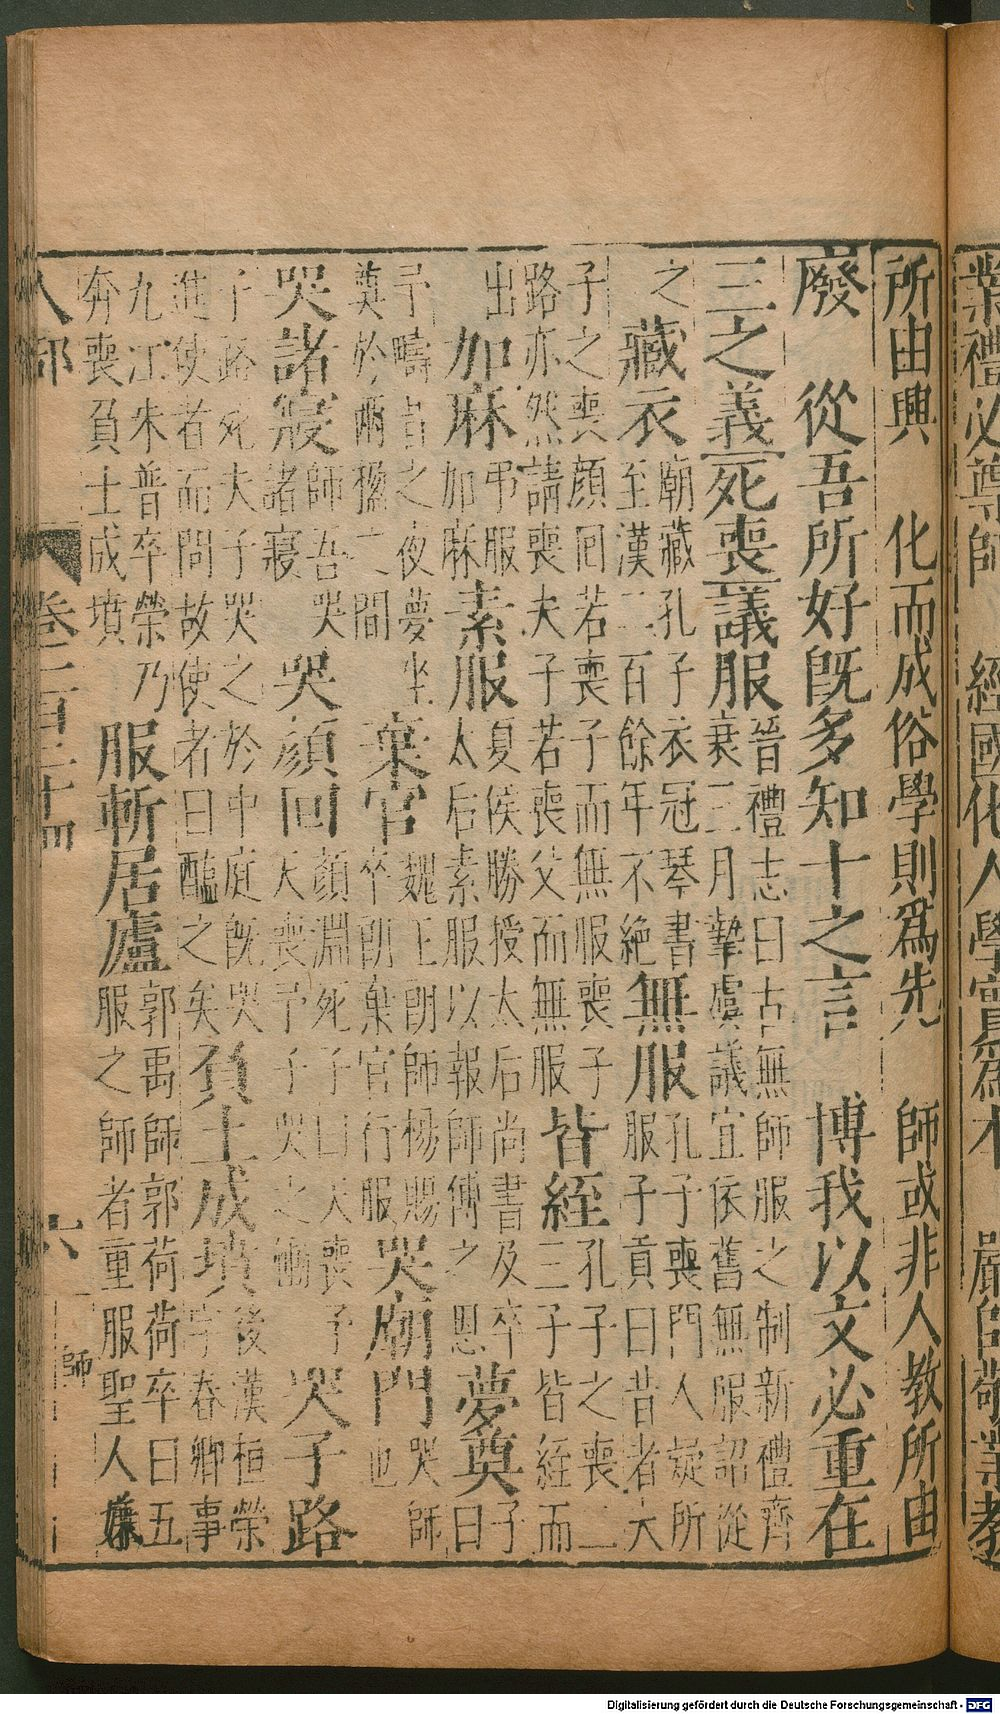 業禮必尊師 經國化人學實爲本 嚴師敬業教
所由興 化而成俗學則爲先 師或非人教所由
廢 從吾所好旣多知十之言 博我以文必重在
三之義 死喪 議服 晉禮志曰古無師服之制新禮齊衰三月摯虞議宜依舊無服詔從
之 藏衣 廟藏孔子衣冠琴書至漢二百餘年不絶 無服 孔子喪門人疑所服子貢曰昔者夫
子之喪顏回若喪子而無服喪子路亦然請喪夫子若喪父而無服 皆絰 孔子之喪二三子皆絰而
出 加麻 弔服加麻 素服 夏侯勝授太后尚書及卒太后素服以報師傅之恩 夢奠 子曰
予疇昔之夜夢坐奠於兩楹之間 棄官 魏王朗師楊賜卒朗棄官行服 哭廟門 哭師也
哭諸寢 師吾哭諸寢 哭顏回 顏淵死子曰天喪予天喪予子哭之慟 哭子路
子路死夫子哭之於中庭旣哭進使者而問故使者曰醢之矣 負土成墳 後漢桓榮字春卿事
九江朱普卒榮乃奔喪負土成墳 服斬居廬 郭禹師郭荷荷卒曰五服之師者重服聖人謙
人部 卷二百三十四 六 師
Digitalisierung gefördert durch die Deutsche Forschungsgemeinschaft - DFG